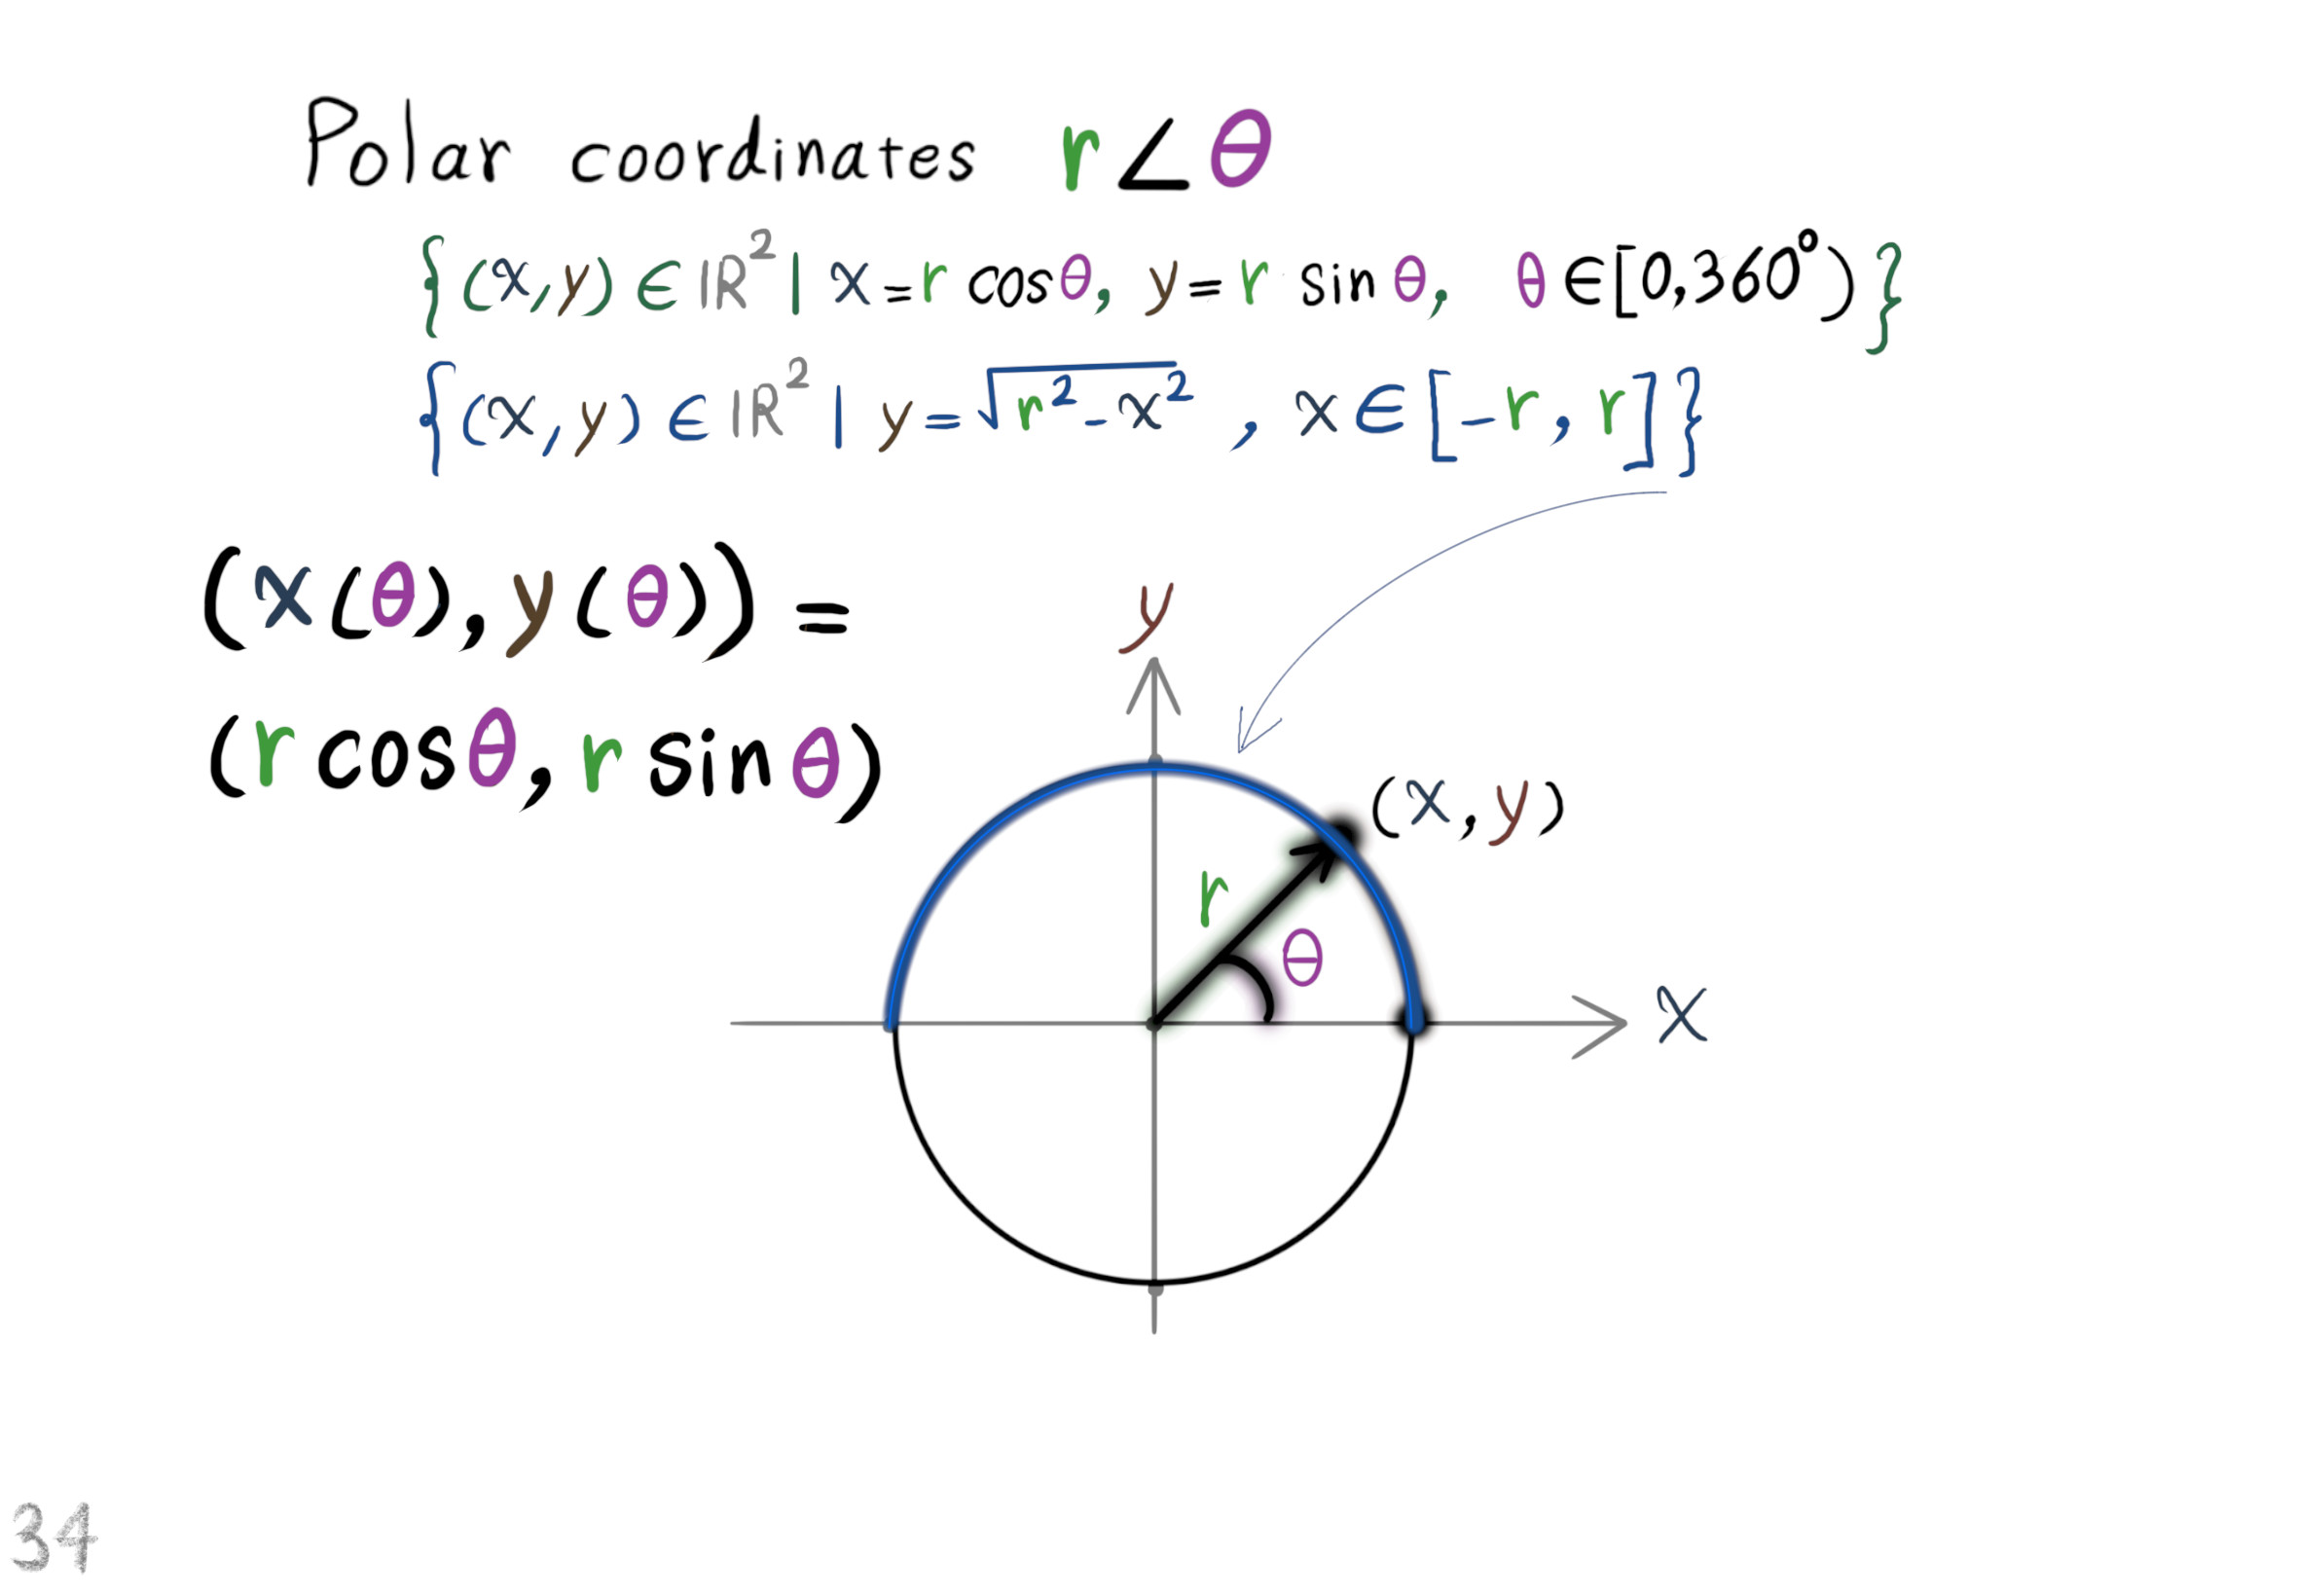 Polar coordinates r∠θ
{(x,y) ∈ ℝ² | x = r cosθ, y = r sin θ, θ ∈ [0,360°)}
{(x,y) ∈ ℝ² | y = √(r² - x²) , x ∈ [-r, r]}
(x(θ), y(θ)) =
(r cosθ, r sin θ)
y
(x,y)
r
θ
x
34